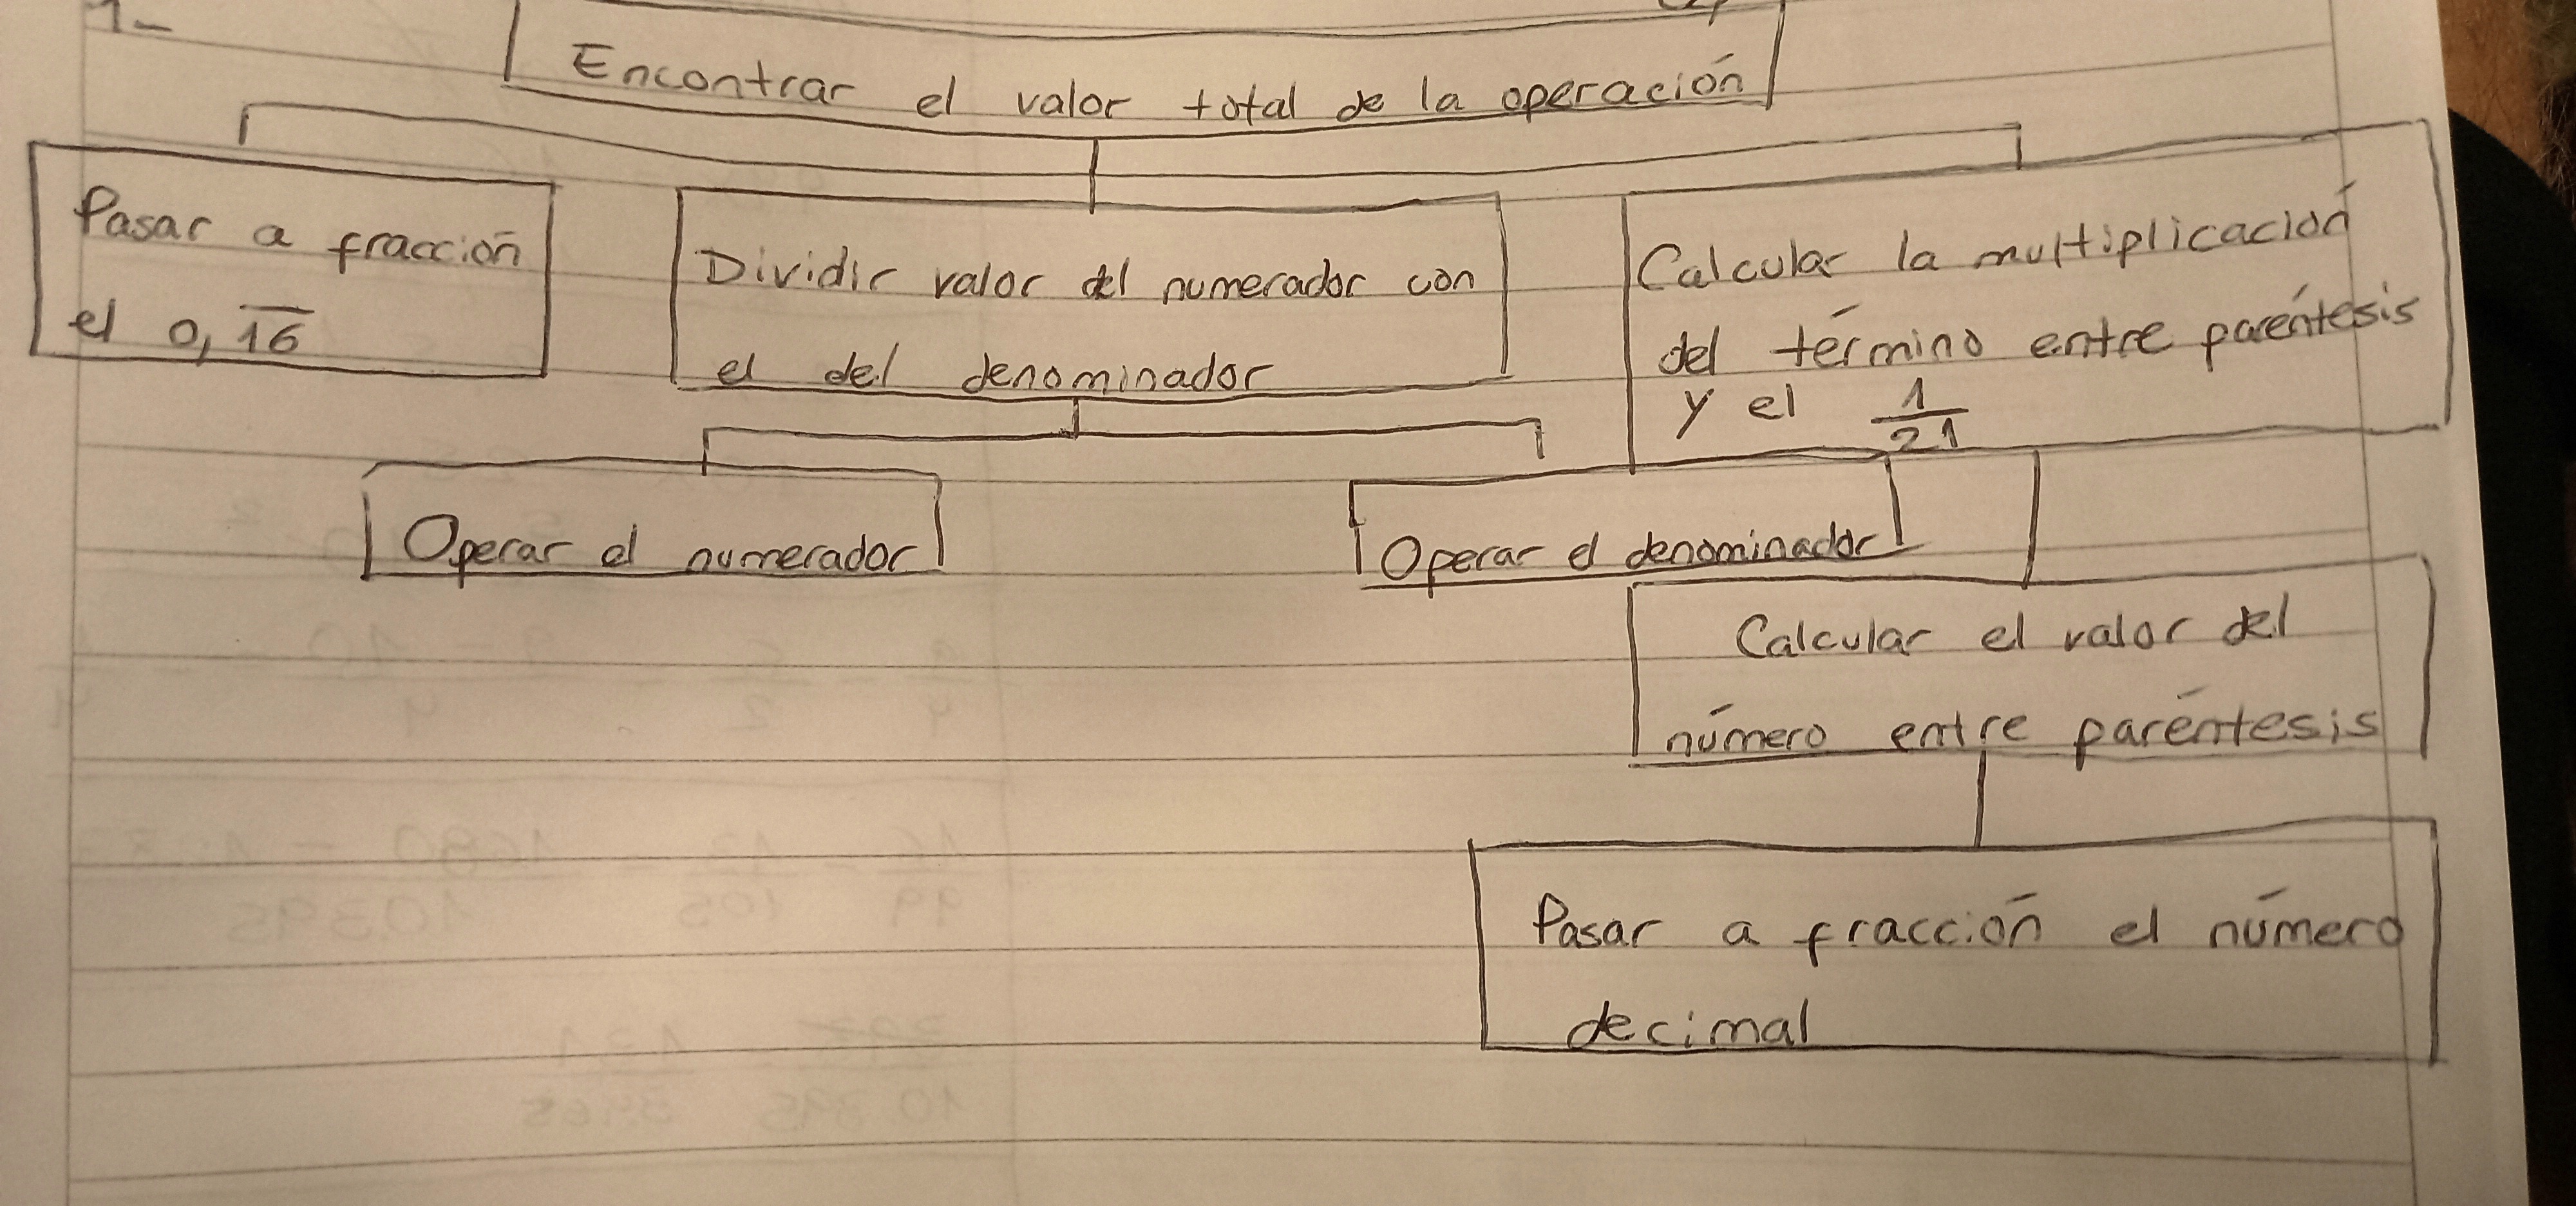 1-
Encontrar el valor total de la operación
Pasar a fracción
el 0,1̅6̅
Dividir valor del numerador con
el del denominador
Calcular la multiplicación
del término entre paréntesis
y el 1/21
Operar el numerador
Operar el denominador
Calcular el valor del
número entre paréntesis
Pasar a fracción el número
decimal